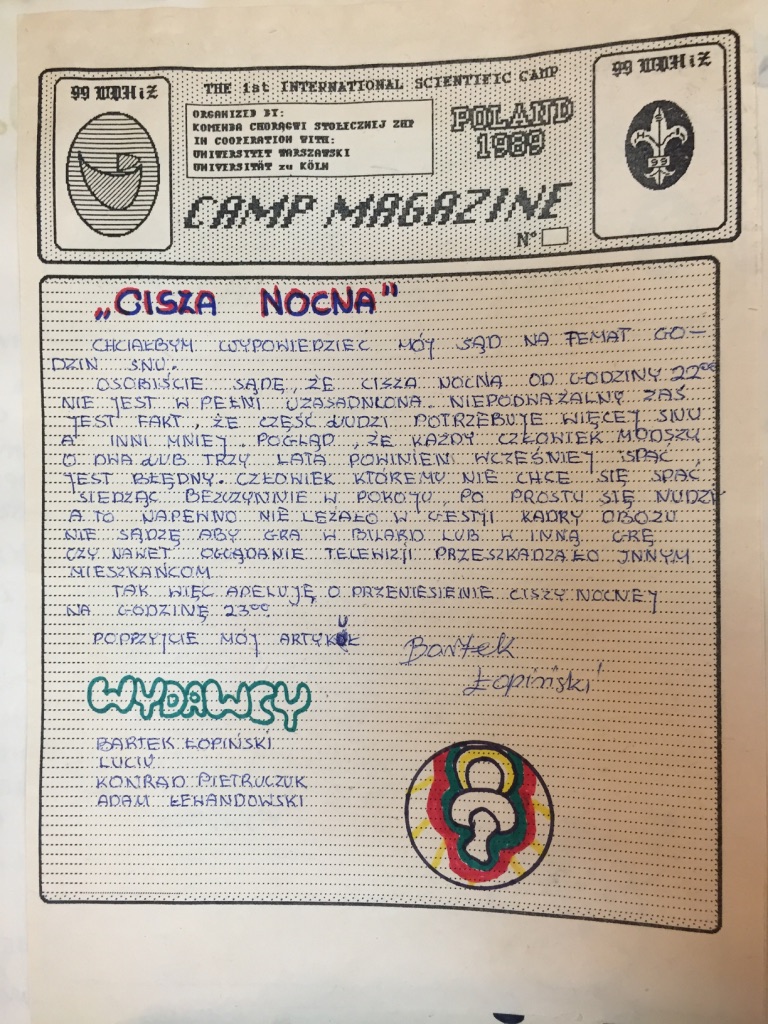 99 WDHiZ
THE 1st INTERNATIONAL SCIENTIFIC CAMP
99 WDHiZ
ORGANIZED BY:
KOMENDA CHORĄGWI STOŁECZNEJ ZHP
IN COOPERATION WITH:
UNIWERSYTET WARSZAWSKI
UNIVERSITÄT zu KÖLN
POLAND
1989
99
CAMP MAGAZINE
Nº
„CISZA NOCNA"
CHCIAŁBYM WYPOWIEDZIEĆ MÓJ SĄD NA TEMAT GO-
DZIN SNU.
OSOBIŚCIE SĄDĘ, ŻE CISZA NOCNA OD GODZINY 22⁰⁰
NIE JEST W PEŁNI UZASADNIONA. NIEPODWAŻALNY ZAŚ
JEST FAKT, ŻE CZĘŚĆ LUDZI POTRZEBUJE WIĘCEJ SNU
A INNI MNIEJ. POGLĄD, ŻE KAŻDY CZŁOWIEK MŁODSZY
O DWA LUB TRZY LATA POWINIEN WCZEŚNIEJ SPAĆ,
JEST BŁĘDNY. CZŁOWIEK KTÓREMU NIE CHCE SIĘ SPAĆ
SIEDZĄC BEZCZYNNIE W POKOJU, PO PROSTU SIĘ NUDZI
A TO NAPEWNO NIE LEŻAŁO W GESTJI KADRY OBOZU
NIE SĄDZĘ ABY GRA W BILARD LUB W INNĄ GRĘ
CZY NAWET OGLĄDANIE TELEWIZJI PRZESZKADZAŁO INNYM
MIESZKAŃCOM
TAK WIĘC APELUJĘ O PRZENIESIENIE CISZY NOCNEJ
NA GODZINĘ 23⁰⁰
POPRZYJCIE MÓJ ARTYKUŁ
Bartek
Łopiński
WYDAWCY
BARTEK ŁOPIŃSKI
LUCIU
KONRAD PIETRUCZUK
ADAM LEWANDOWSKI